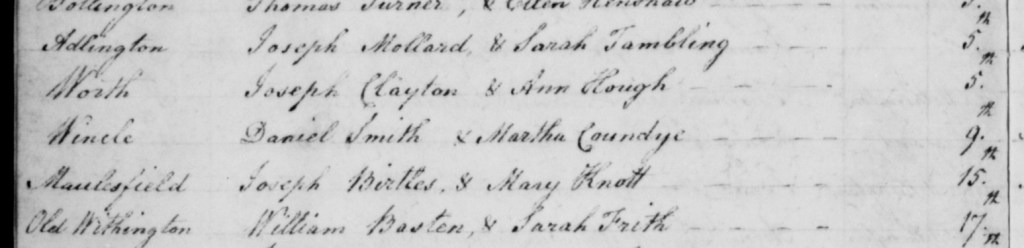 Bollington Thomas Turner, & Ellen Henshaw 3.
Adlington Joseph Mollard, & Sarah Tambling 5.th
Worth Joseph Clayton & Ann Hough 5.th
Wincle Daniel Smith & Martha Coundye 9.th
Maulesfield Joseph Birtles, & Mary Knott 15.th
Old Withington William Basten, & Sarah Frith 17.th